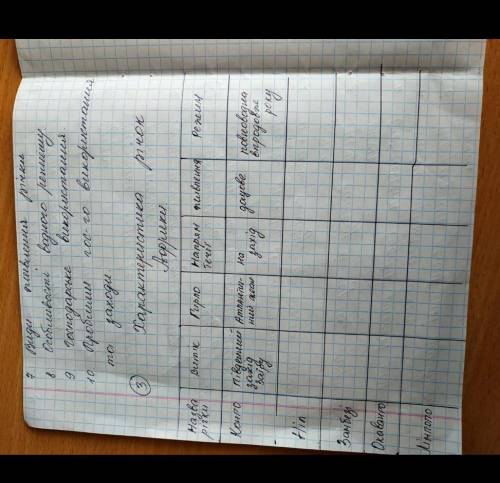 7 Види живлення річки
8 Особливості водного режиму
9 Господарське використання
10 Проблеми гос-го використання
та заходи
3 Характеристика річок
Африки
Назва річки | Витік | Гирло | Напрям течії | Живлення | Режим
Конго | Південний захід Заїру | Атлантичний океан | на захід | дощове | повноводна впродовж року
Ніл
Замбезі
Окаванго
Лімпопо